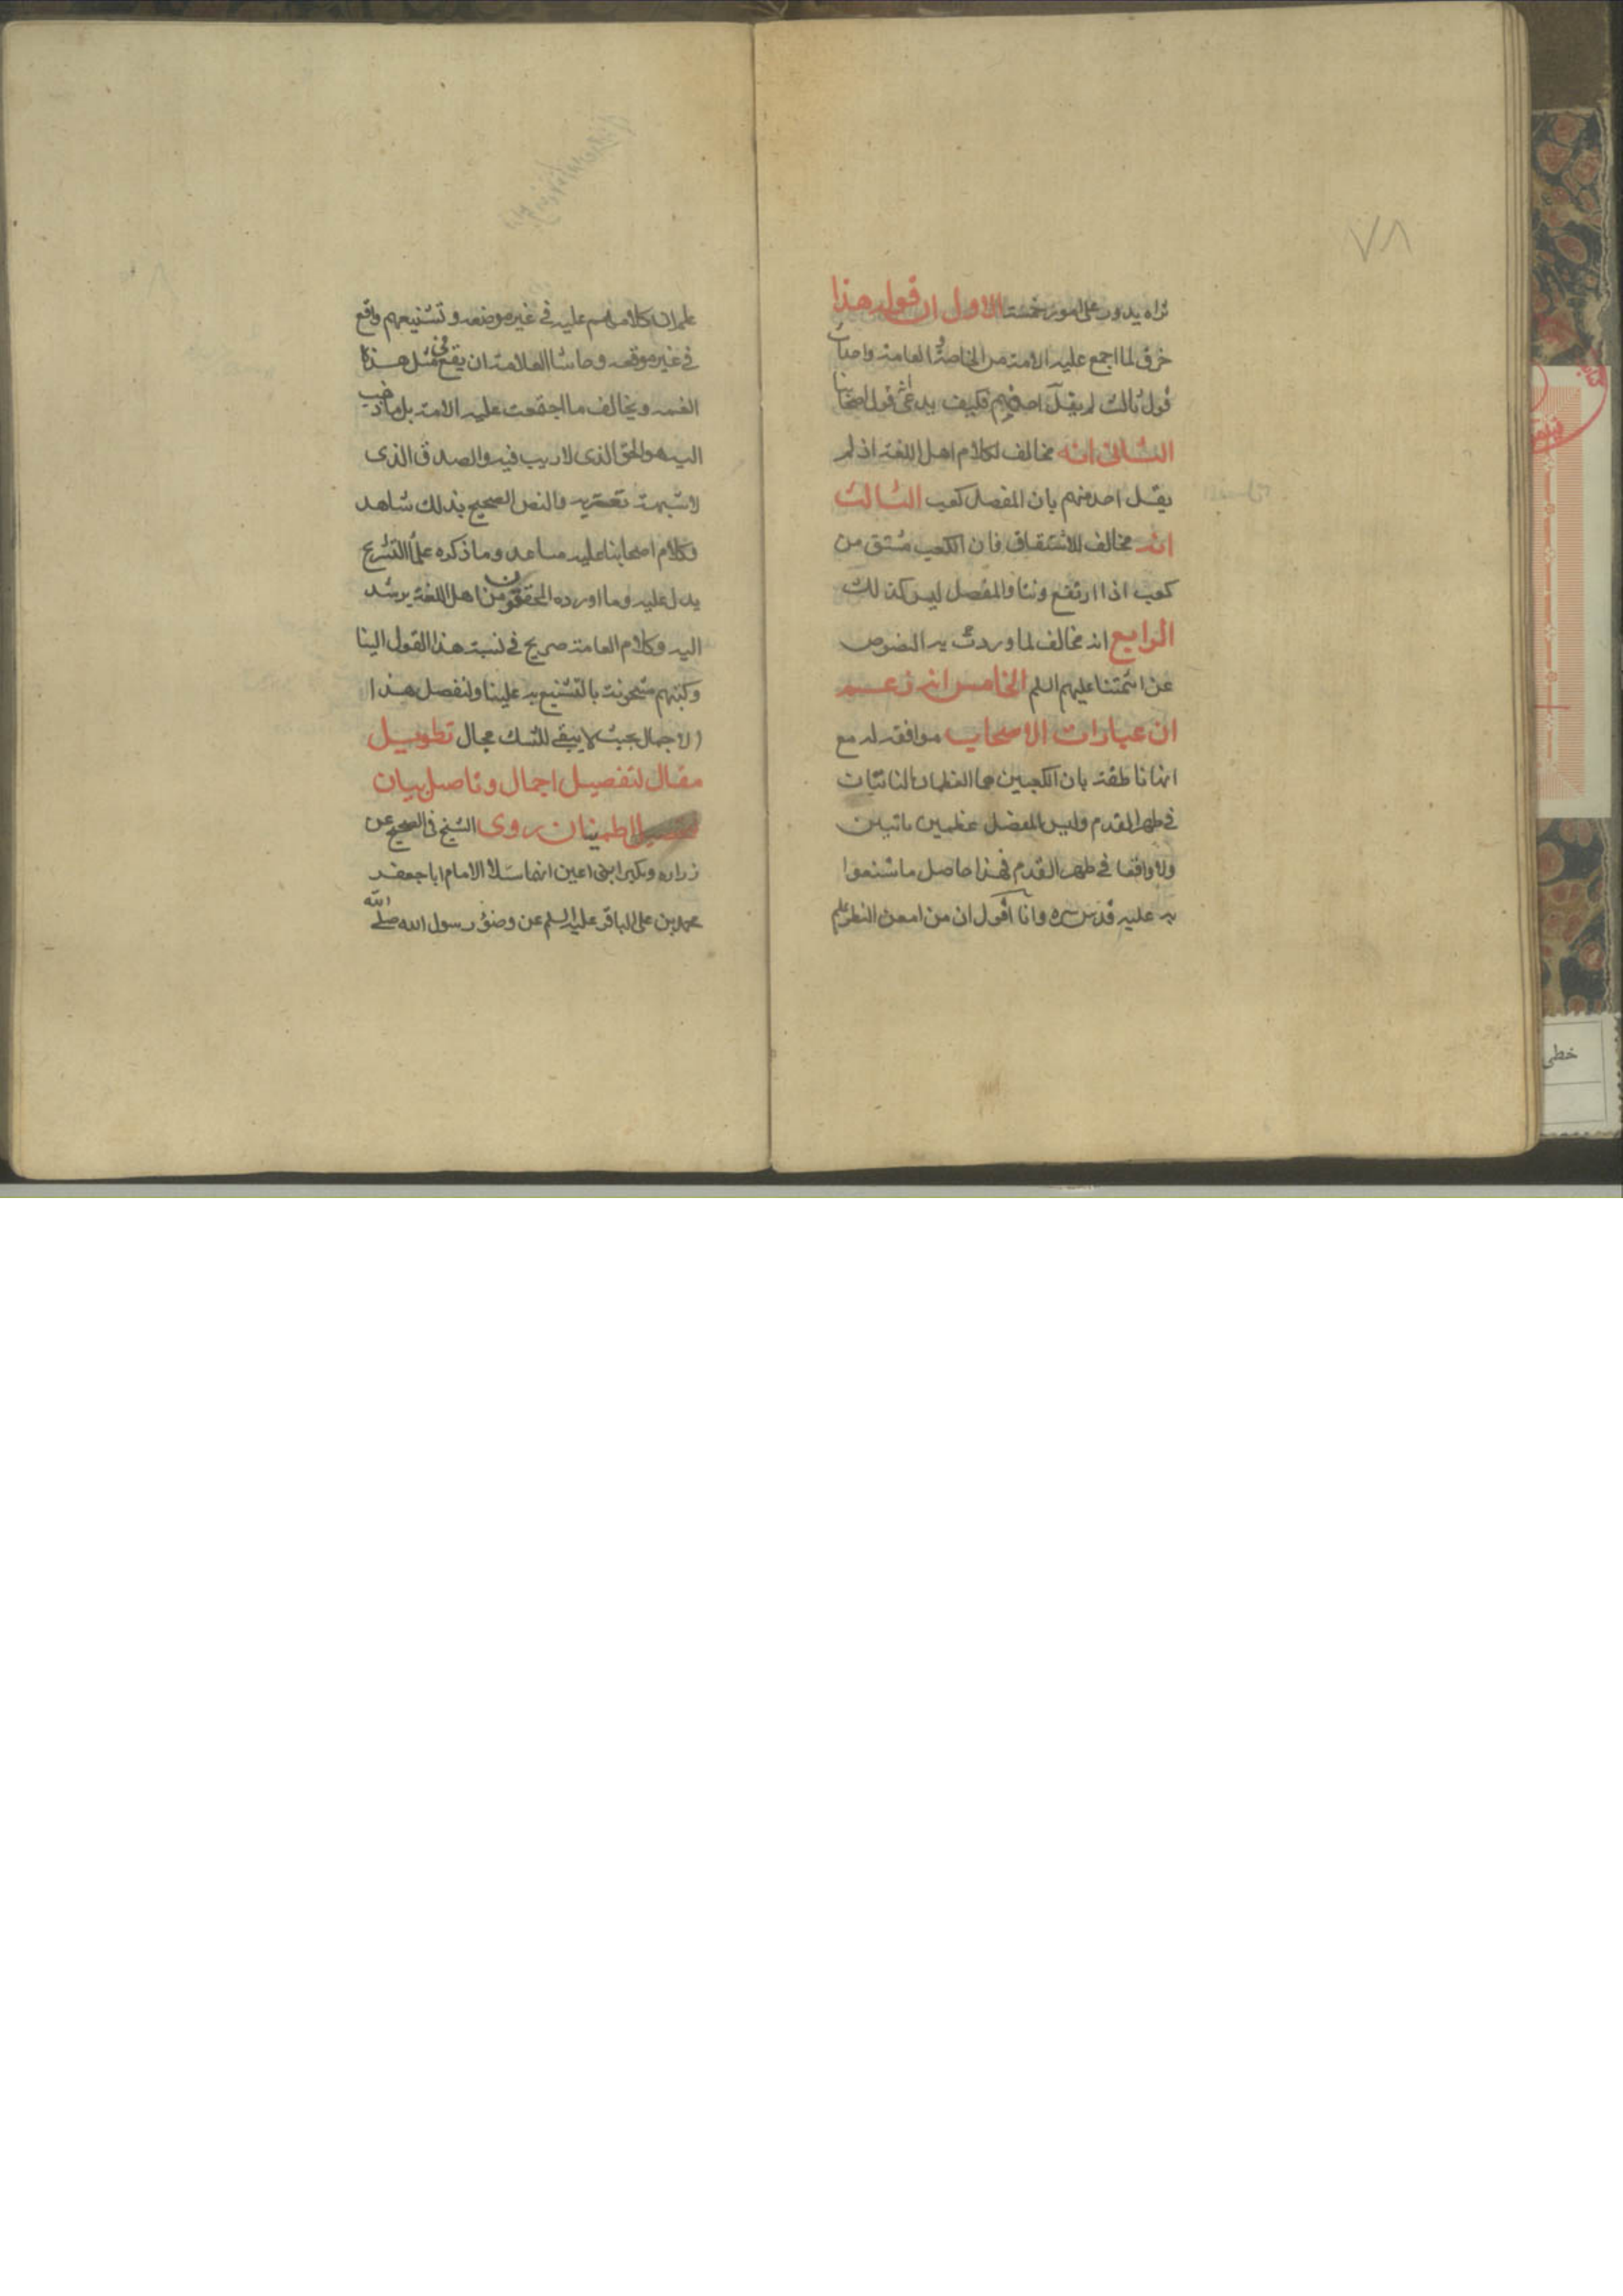 ٧٨
تراه يدور على امور خمسة الاول ان قوله هذا
خرق لما اجمع عليه الامة من الخاصة و العامة واحداث
قول ثالث لم يقل احد منهم فكيف يدعى قول اصحابنا
الثانى انه مخالف لكلام اهل اللغة اذ لم
يقل احد منهم بان المفصل كعب الثالث
انه مخالف للاشتقاق فان الكعب مشتق من
كعب اذا ارتفع ونتا والمفصل ليس كذلك
الرابع انه مخالف لما وردت به النصوص
عن ائمتنا عليهم السلم الخامس انه زعم
ان عبارات الاصحاب موافقه له مع
انها ناطقة بان الكعبين هما العظمان الناتيان
فى ظهر القدم وليس المفصل عظمين ناتيين
ولا واقعا فى ظهر القدم فهذا حاصل ما شنعوا
به عليه قدس سره وانا اقول ان من امعن النظر علم
علم ان كلامهم عليه فى غير موضعه وتشنيعهم واقع
فى غير موقعه وحاشا العلامة ان يقع فى مثل هذا
الغمه ويخالف ما اجتمعت عليه الامة بل ما ذهب
اليه هو الحق الذى لا ريب فيه والصدق الذى
لا شبهة تعتريه والنص الصحيح بذلك شاهد
وكلام اصحابنا عليه مساعد وما ذكره علماء التشريح
يدل عليه وما اورده المحققون من اهل اللغة يرشد
اليه وكلام العامة صريح فى نسبة هذا القول الينا
وكتبهم مشحونة بالتشنيع به علينا ولنفصل هذا
الاجمال بحيث لا يبقى للشك مجال تطويل
مقال لتفصيل اجمال وتاصيل بيان
لتحصيل اطمينان روى الشيخ فى الصحيح عن
زراره وبكير ابنى اعين انهما سئلا الامام ابا جعفر
محمد بن على الباقر عليه السلم عن وضوء رسول الله صلى الله
خطى